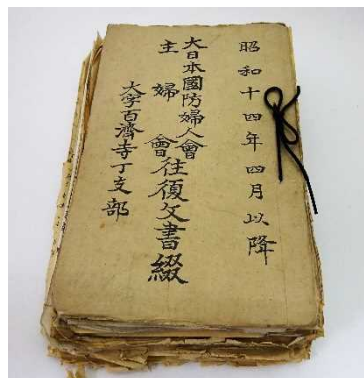 昭和十四年四月以降
大日本國防婦人會
主婦會往復文書綴
大字百濟寺丁支部